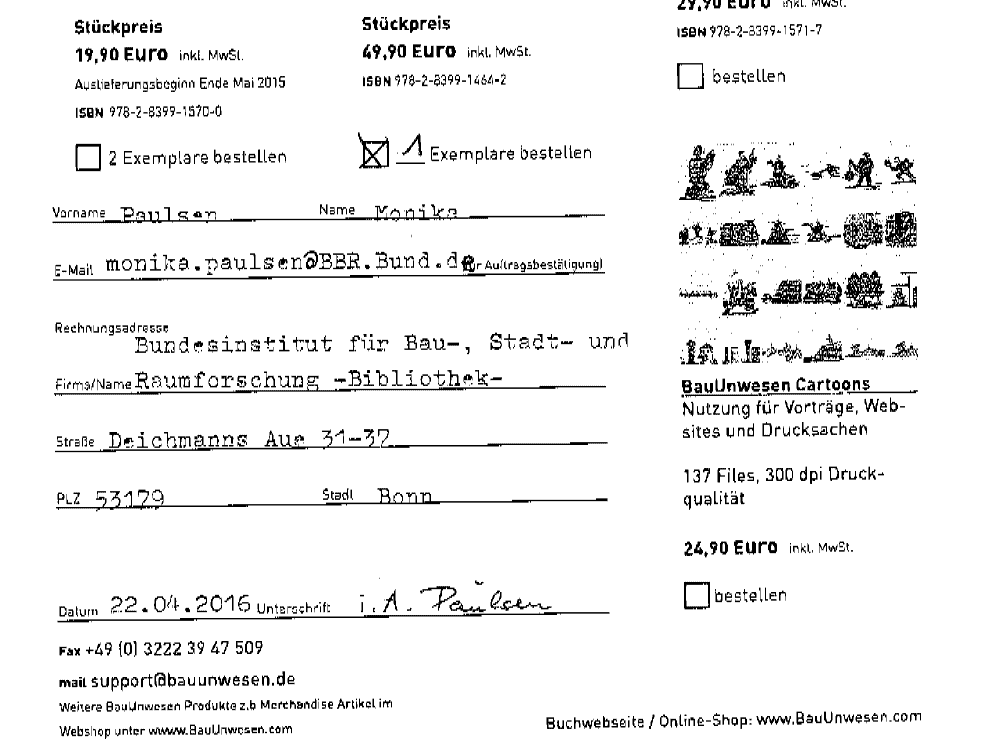 Stückpreis
19,90 Euro inkl. MwSt.
Auslieferungsbeginn Ende Mai 2015
ISBN 978-2-8399-1570-0
2 Exemplare bestellen
Stückpreis
49,90 Euro inkl. MwSt.
ISBN 978-2-8399-1464-2
1 Exemplare bestellen
29,90 Euro inkl. MwSt.
ISBN 978-2-8399-1571-7
bestellen
Vorname Paulsen Name Monika
E-Mail monika.paulsen@BBR.Bund.de r Auftragsbestätigung)
Rechnungsadresse
Bundesinstitut für Bau-, Stadt- und
Firma/Name Raumforschung -Bibliothek-
Straße Deichmanns Aue 31-37
PLZ 53179 Stadt Bonn
Datum 22.04.2016 Unterschrift i.A. Paulsen
Fax +49 (0) 3222 39 47 509
mail support@bauunwesen.de
Weitere BauUnwesen Produkte z.b Merchandise Artikel im
Webshop unter wwww.BauUnwesen.com
BauUnwesen Cartoons
Nutzung für Vorträge, Web-
sites und Drucksachen
137 Files, 300 dpi Druck-
qualität
24,90 Euro inkl. MwSt.
bestellen
Buchwebseite / Online-Shop: www.BauUnwesen.com